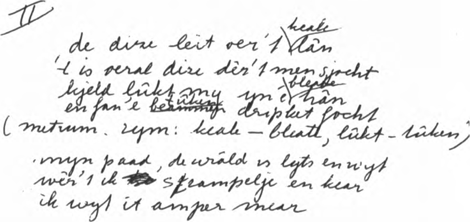 II
de dize leit oer 't keale lân
't is oeral dize dêr 't men sjocht
kjeld lûkt my yn 'e bleate hân
en fan 'e tûken dripket focht
(metrum. rym: keale – bleate, lûkt – tûken)
myn paad, de wrâld is lyts en wyt
wêr 't ik strampelje en kear
ik wyt it amper mear